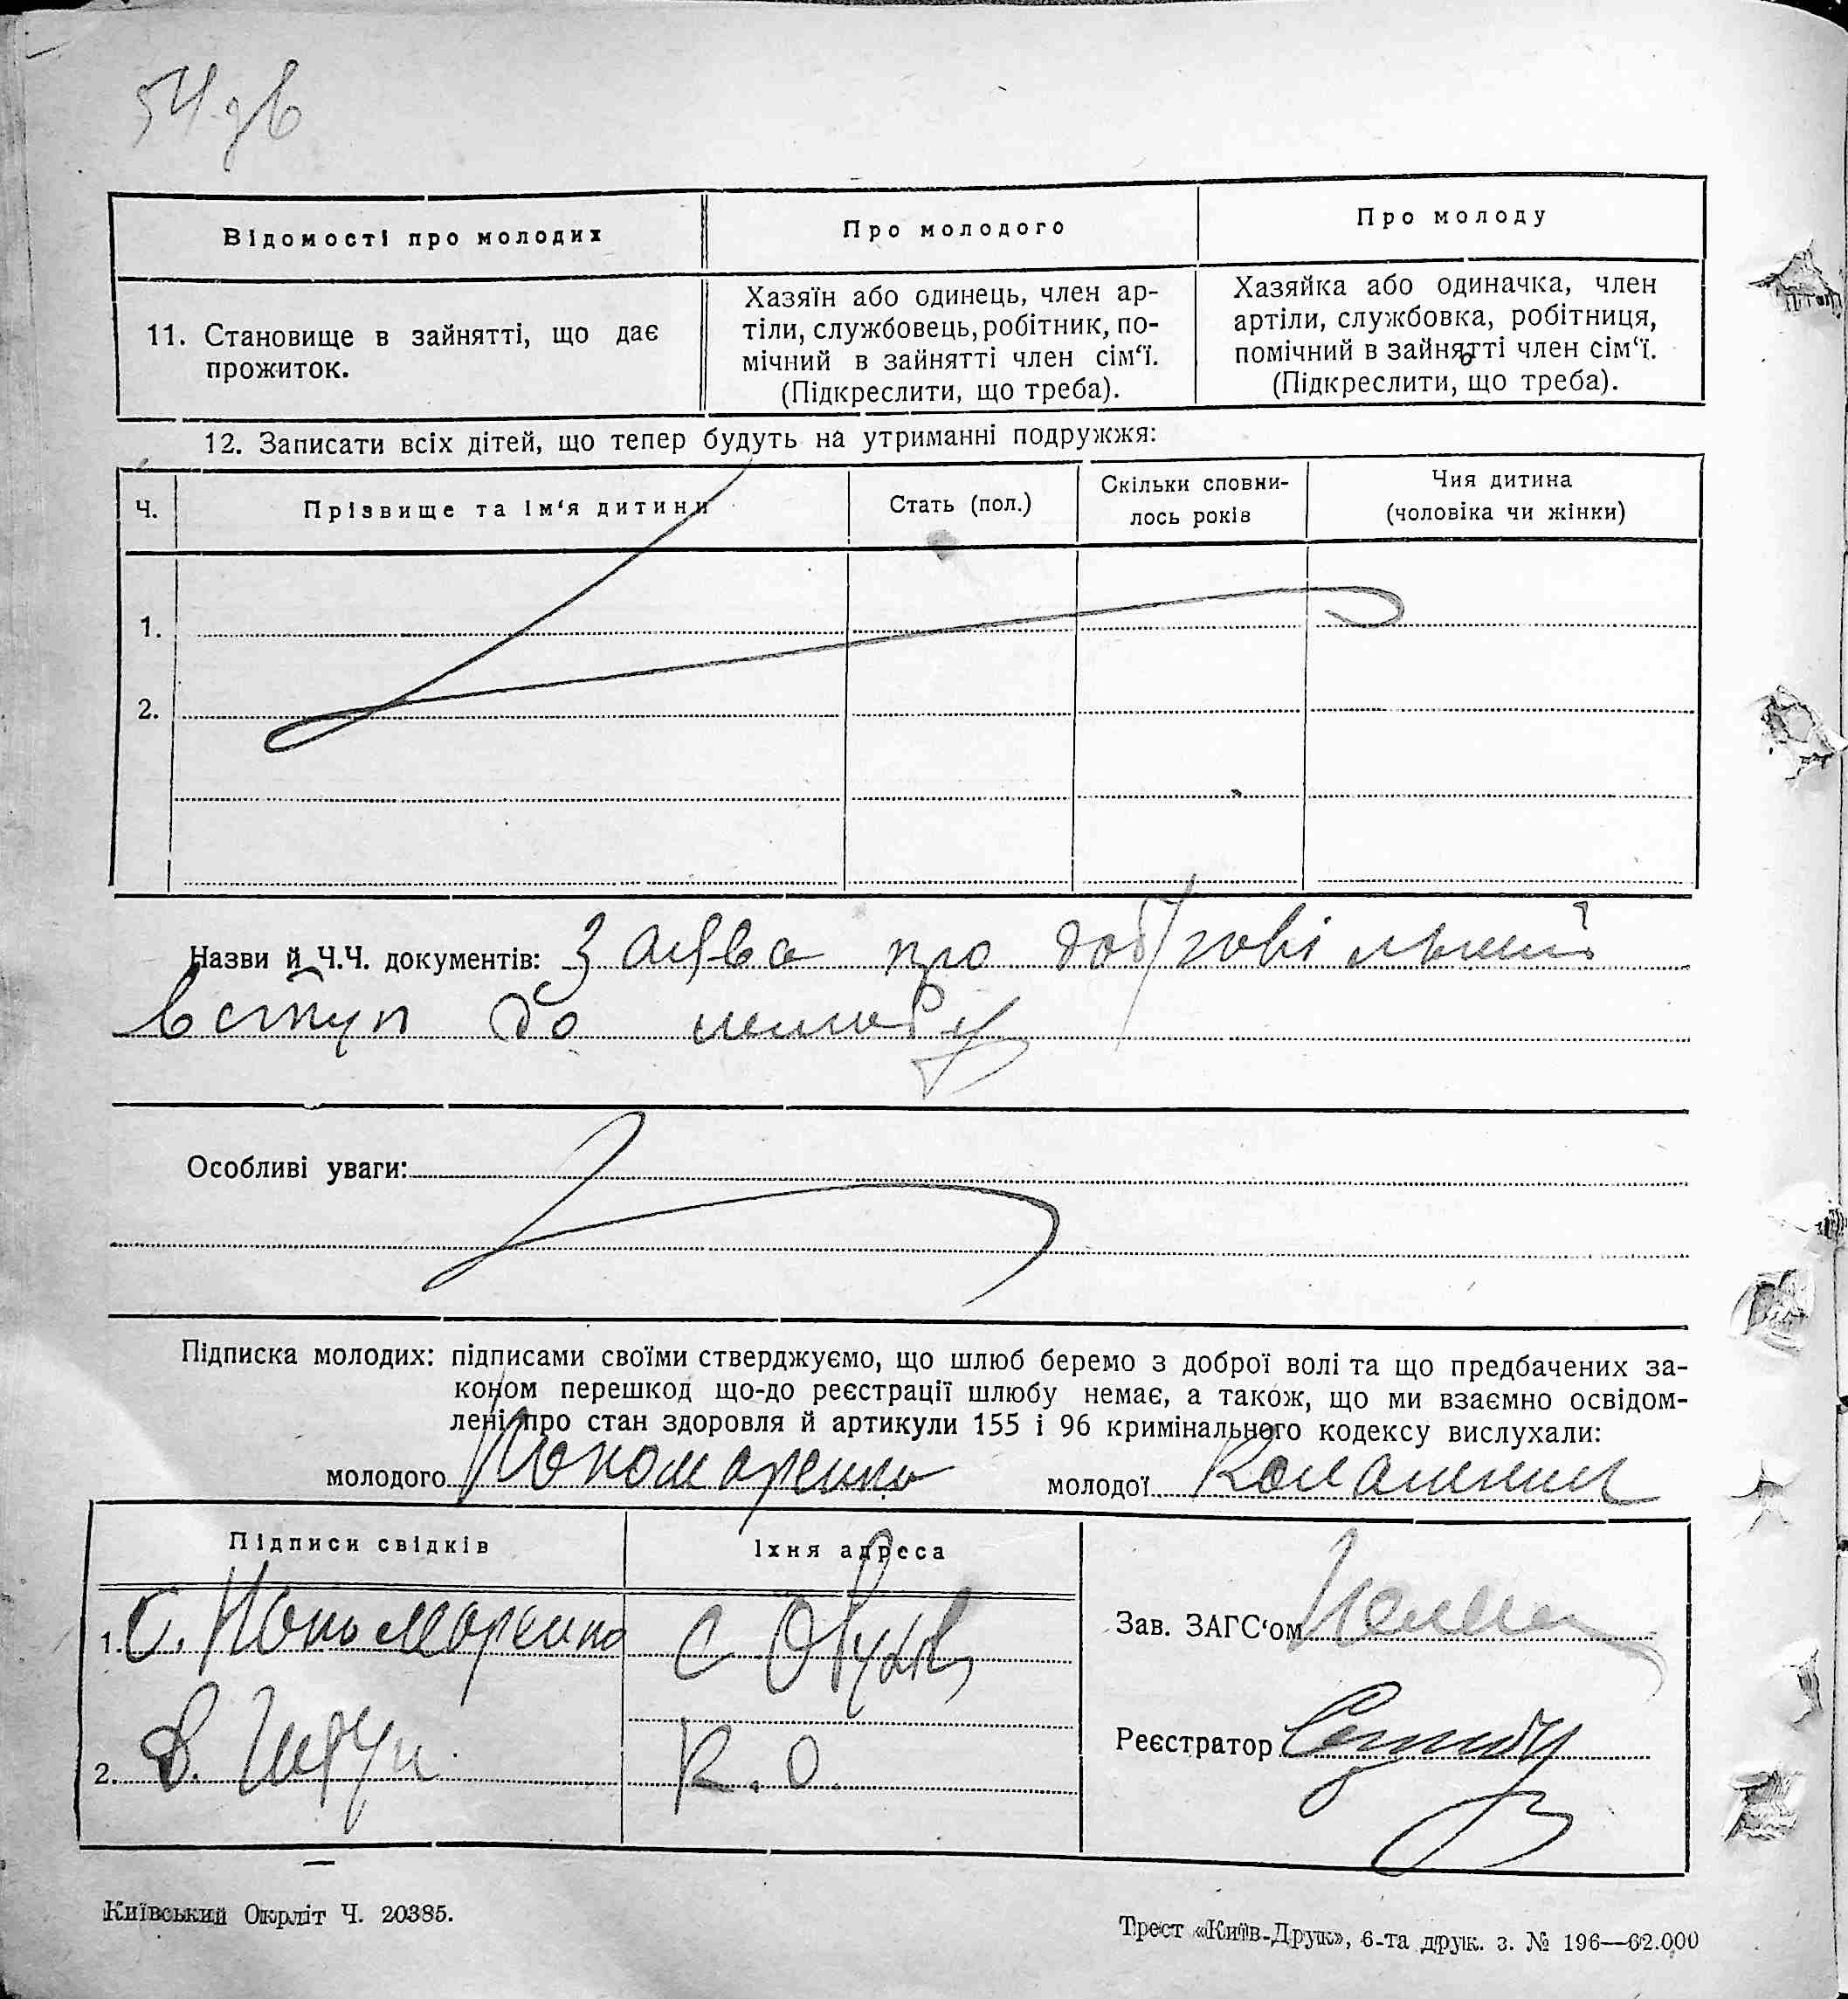 54 зв
Відомості про молодих
Про молодого
Про молоду
11. Становище в зайнятті, що дає
прожиток.
Хазяїн або одинець, член ар-
тіли, службовець, робітник, по-
мічний в зайнятті член сім'ї.
(Підкреслити, що треба).
Хазяйка або одиначка, член
артіли, службовка, робітниця,
помічний в зайнятті член сім'ї.
(Підкреслити, що треба).
12. Записати всіх дітей, що тепер будуть на утриманні подружжя:
Ч.
Прізвище та ім'я дитини
Стать (пол.)
Скільки сповни-
лось років
Чия дитина
(чоловіка чи жінки)
1.
2.
Назви й Ч.Ч. документів: Заява про добровільний
вступ до шлюбу
Особливі уваги:
Підписка молодих: підписами своїми стверджуємо, що шлюб беремо з доброї волі та що предбачених за-
коном перешкод що-до реєстрації шлюбу немає, а також, що ми взаємно освідом-
лені про стан здоровля й артикули 155 і 96 кримінального кодексу вислухали:
молодого Пономаренко молодої
Підписи свідків
Їхня адреса
1. С. Пономаренко
с
2. В.
К. О.
Зав. ЗАГС'ом
Реєстратор
Київський Окрліт Ч. 20385.
Трест «Київ-Друк», 6-та друк. з. № 196—62.000